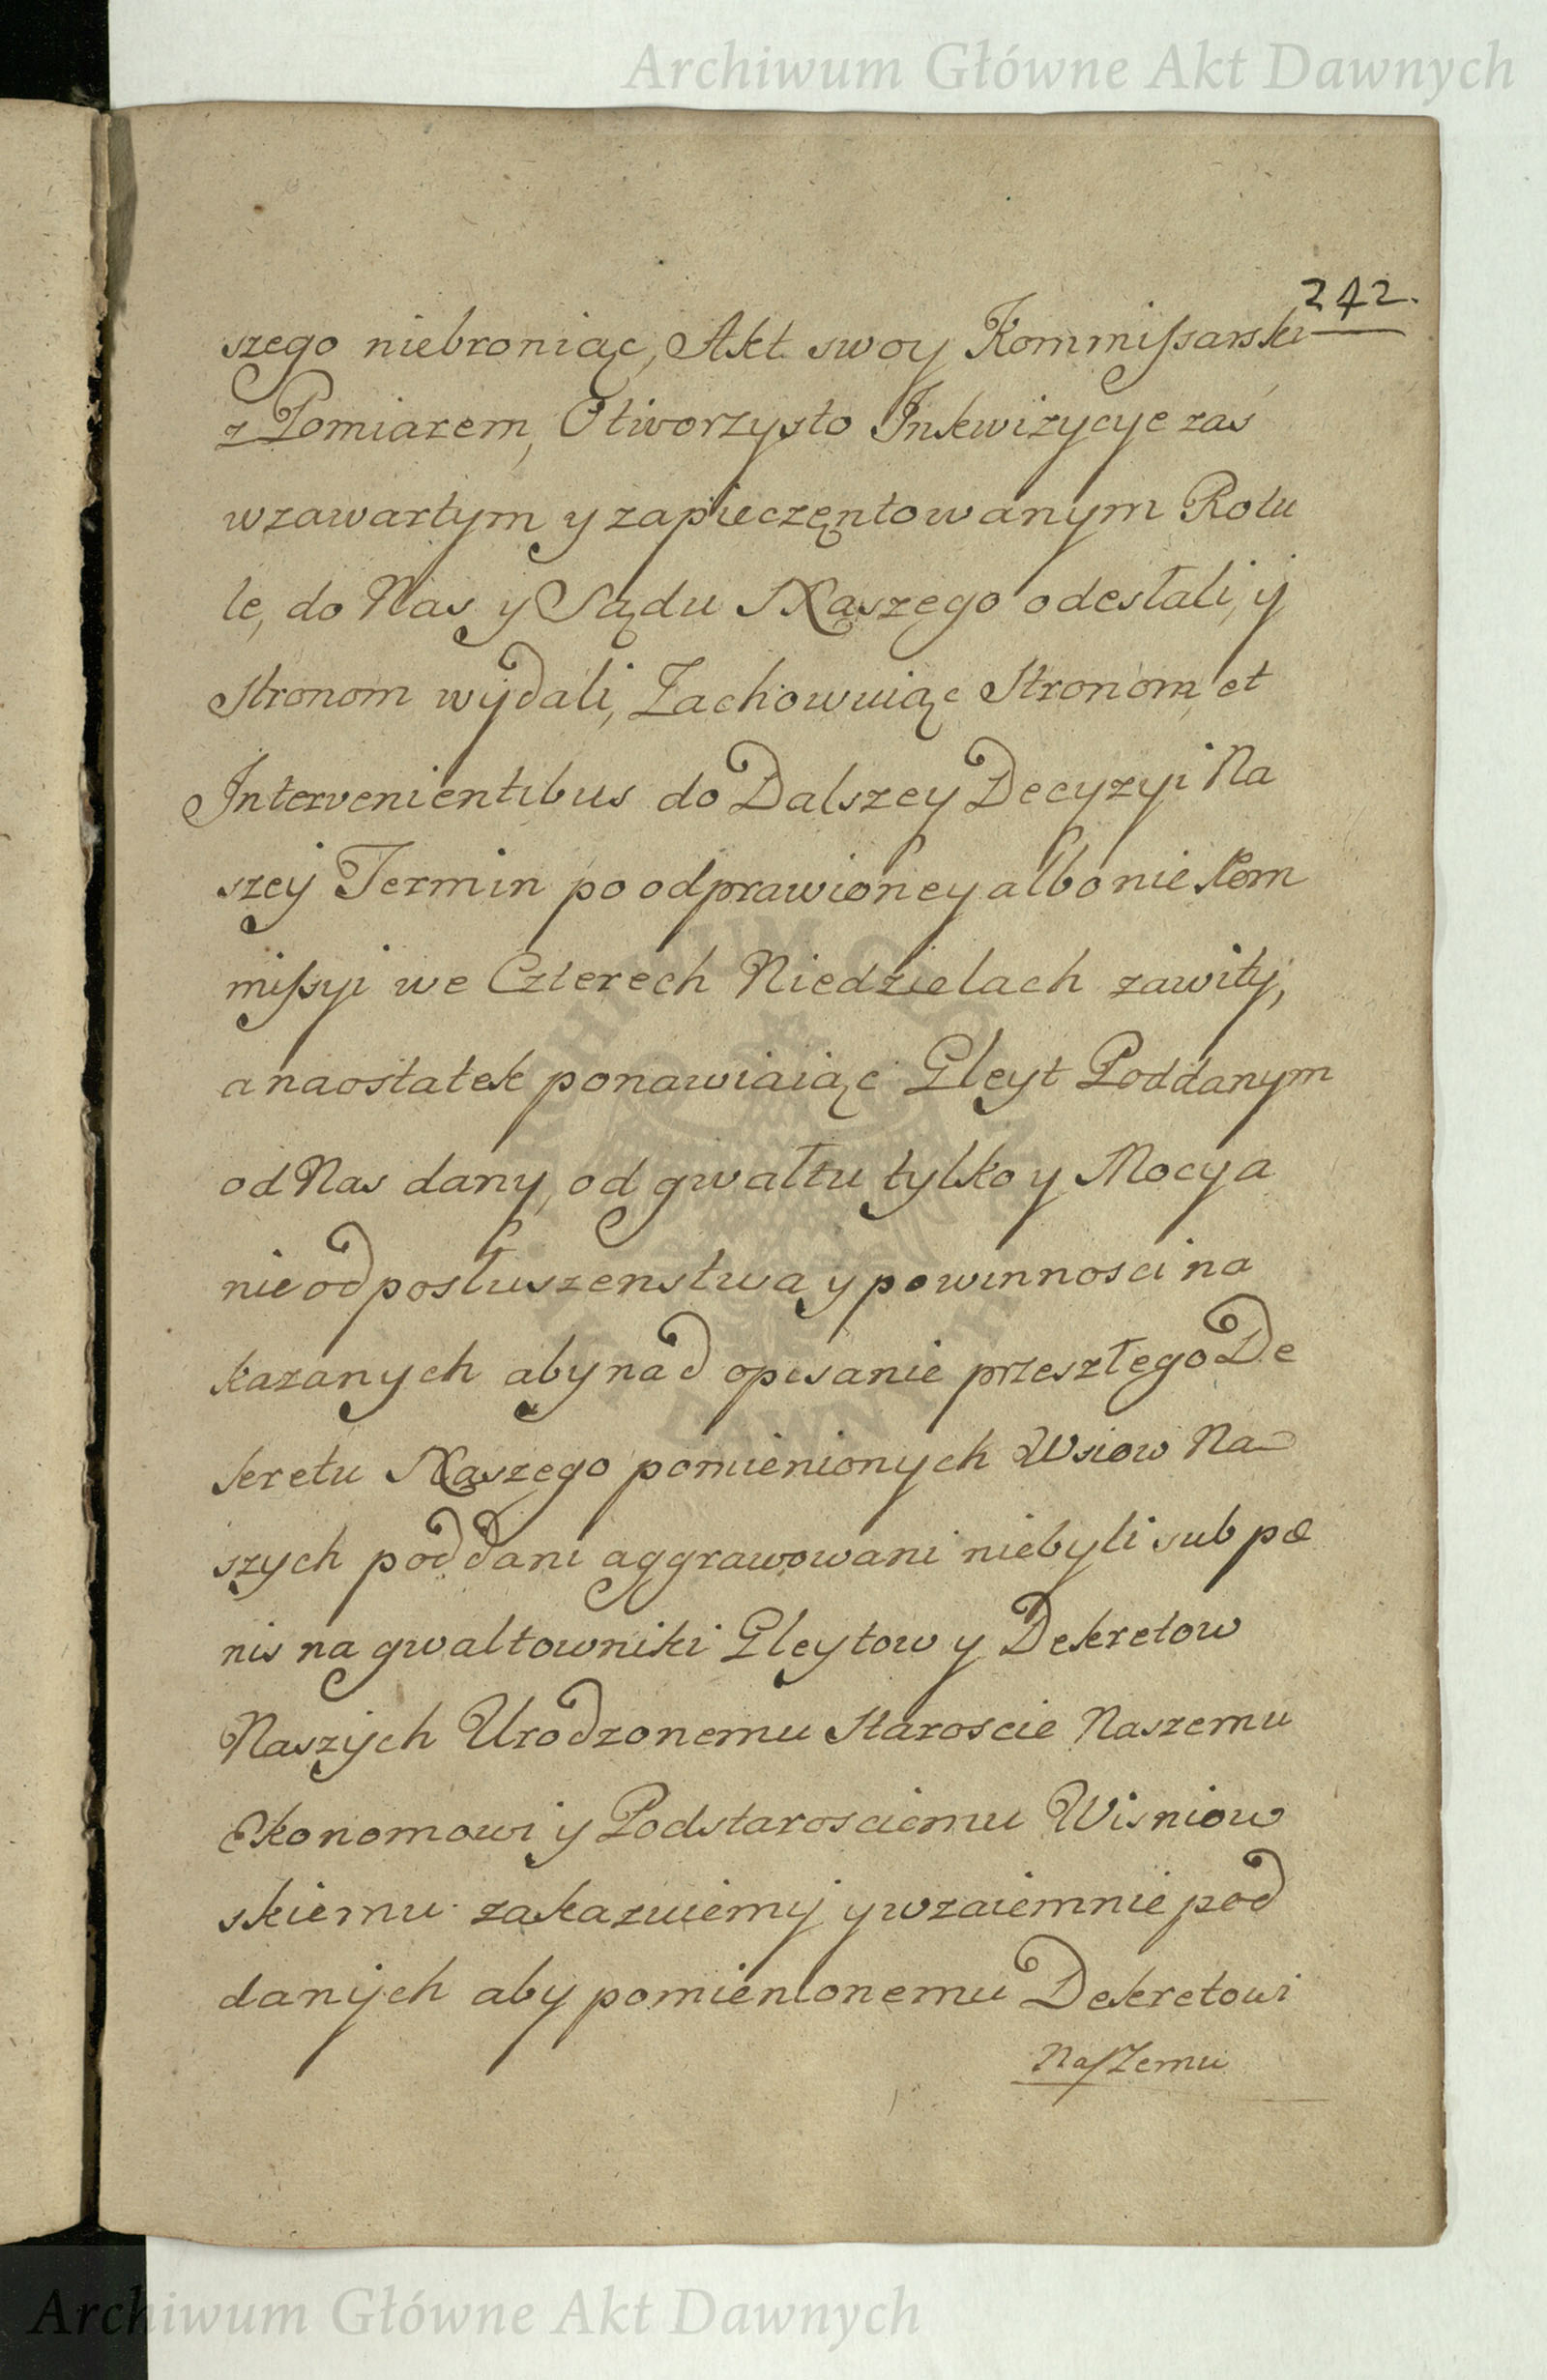 Archiwum Główne Akt Dawnych
242.
szego niebroniąc, Akt swoy Kommißarski
z Pomiarem, Otworzysto Inkwizycye zaś
wzawartym y zapieczętowanym Rotu
le, do Nas y Sądu Naszego odesłali, y
Stronom wydali, Zachowuiąc Stronom et
Intervenientibus do Dalszey Decyzyi Na
szey Termin po odprawioney albo nie Kom
mißyi we Czterech Niedzielach zawity,
a naostatek ponawiaiąc Gleyt Poddanym
od Nas dany, od gwałtu tylko y Mocy a
nie od posłuszenstwa y powinnosci na
kazanych aby nad opisanie przeszłego De
kretu Naszego pomienionych Wsiow Na
szych poddani aggrawowani niebyli sub pœ
nis na gwałtowniki Gleytow y Dekretow
Naszych Urodzonemu Staroscie Naszemu
Ekonomowi y Podstarosciemu Wisniow
skiemu zakazuiemy y wzaiemnie pod
danych aby pomienionemu Dekretowi
Naszemu
Archiwum Główne Akt Dawnych